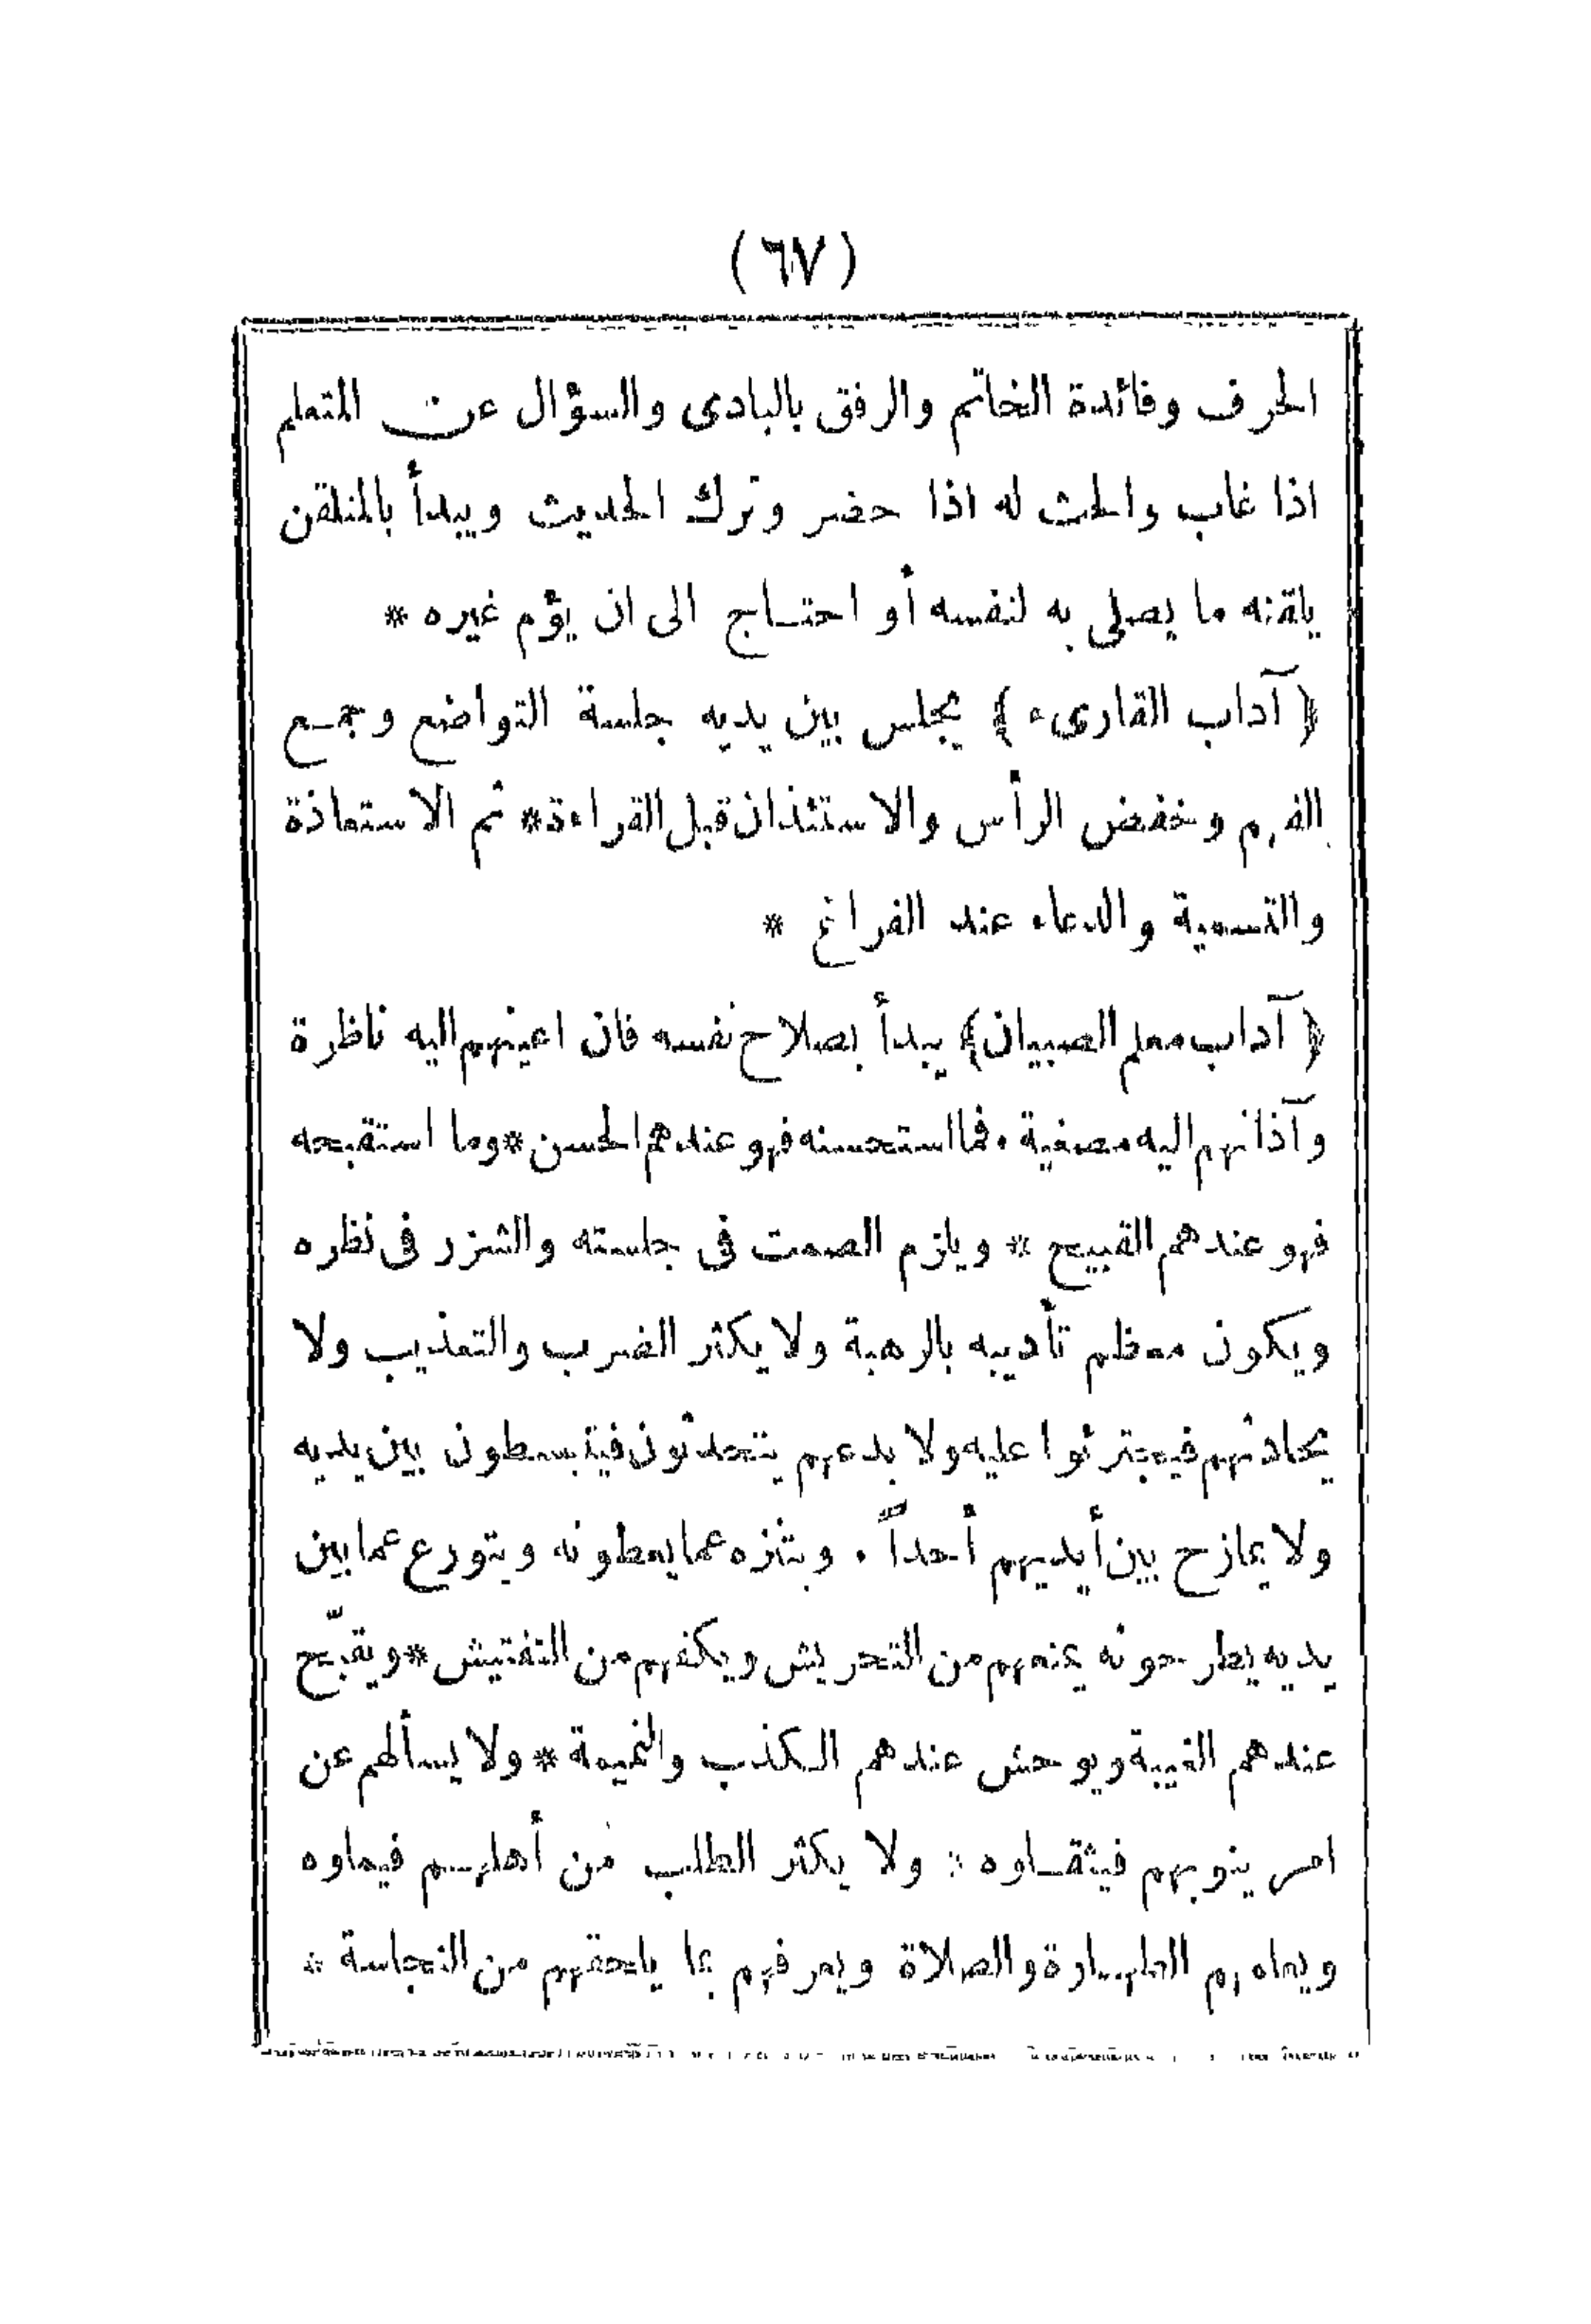 (٦٧)
الحرف وفائدة الخاتم والرفق بالبادى والسؤال عن المتعلم
اذا غاب والحث له اذا حضر وترك الحديث ويبدأ بالمتلقن
يلقنه ما يصلي به لنفسه أو احتاج الى ان يؤم غيره *
﴿ آداب القارىء ﴾ يجلس بين يديه جلسة التواضع وجمع
الفهم وخفض الرأس والاستئذان قبل القراءة * ثم الاستعاذة
والتسمية والدعاء عند الفراغ *
﴿ آداب معلم الصبيان ﴾ يبدأ بصلاح نفسه فان اعينهم اليه ناظرة
وآذانهم اليه مصغية . فما استحسنه فهو عندهم الحسن * وما استقبحه
فهو عندهم القبيح * ويلزم الصمت فى جلسته والشزر فى نظره
ويكون معظم تأديبه بالرهبة ولا يكثر الضرب والتعذيب ولا
يحادثهم فيجترئوا عليه ولا يدعهم يتحدثون فينبسطون بين يديه
ولا يمازح بين أيديهم أحداً . ويتنزه عما يعطونه ويتورع عما بين
يديه يطرحونه يمنعهم من التحريش ويكفهم من التفتيش * ويقبّح
عندهم الغيبة ويوحش عندهم الكذب والنميمة * ولا يسألهم عن
امر ينوبهم فيثقلوه * ولا يكثر الطلب من أهلهم فيملوه
ويعلمهم الطهارة والصلاة ويعرفهم بما يلحقهم من النجاسة *